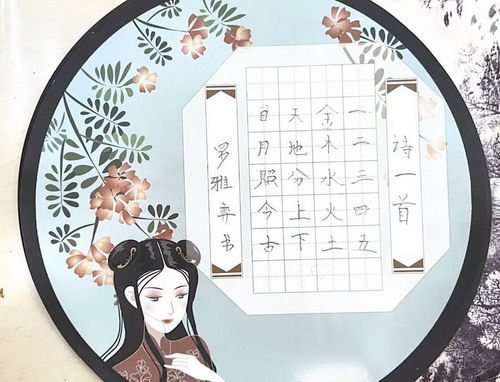 诗一首
一二三四五
金木水火土
天地分上下
日月照今古
罗雅弈书